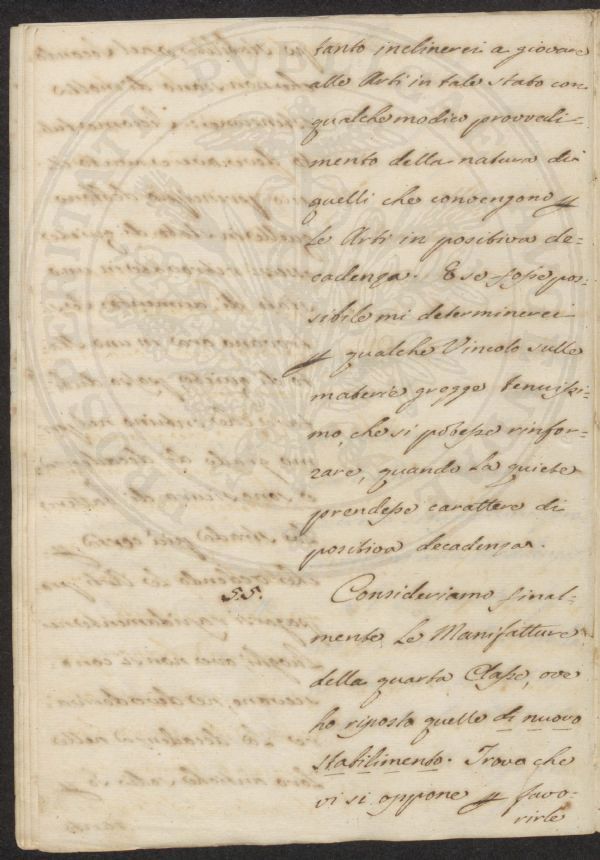 tanto inclinerei a giovare
alle Arti in tale stato con
qualche modico provvedi-
mento della natura di
quelli che convengono p
le Arti in positiva de-
cadenza. E se fosse pos-
sibile mi determinerei
p qualche Vincolo sulle
materie gregge tenuissi-
mo, che si potesse rinfor-
zare, quando la quiete
prendesse carattere di
positiva decadenza.
55. Consideriamo final-
mente le Manifatture
della quarta Classe, ove
ho riposto quelle di nuovo
stabilimento. Trovo che
vi si oppone p favo-
rirle